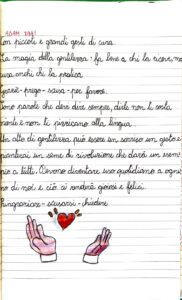 Con piccoli e grandi gesti di cura
La magia della gentilezza fa bene a chi la riceve, ma
cura anche chi la pratica
grazie - prego - scusa - per favore.
Sono parole che devi dire sempre, dirle non ti costa
niente e non ti pizzicano alla lingua
Un atto di gentilezza può essere un sorriso un gesto e
pianterai un seme di rivoluzione che darà un esem-
pio a tutti. Devono diventare uso quotidiano a ogni
di noi e ciò ci renderà gioiosi e felici.
Ringraziare - scusarsi - chiedere